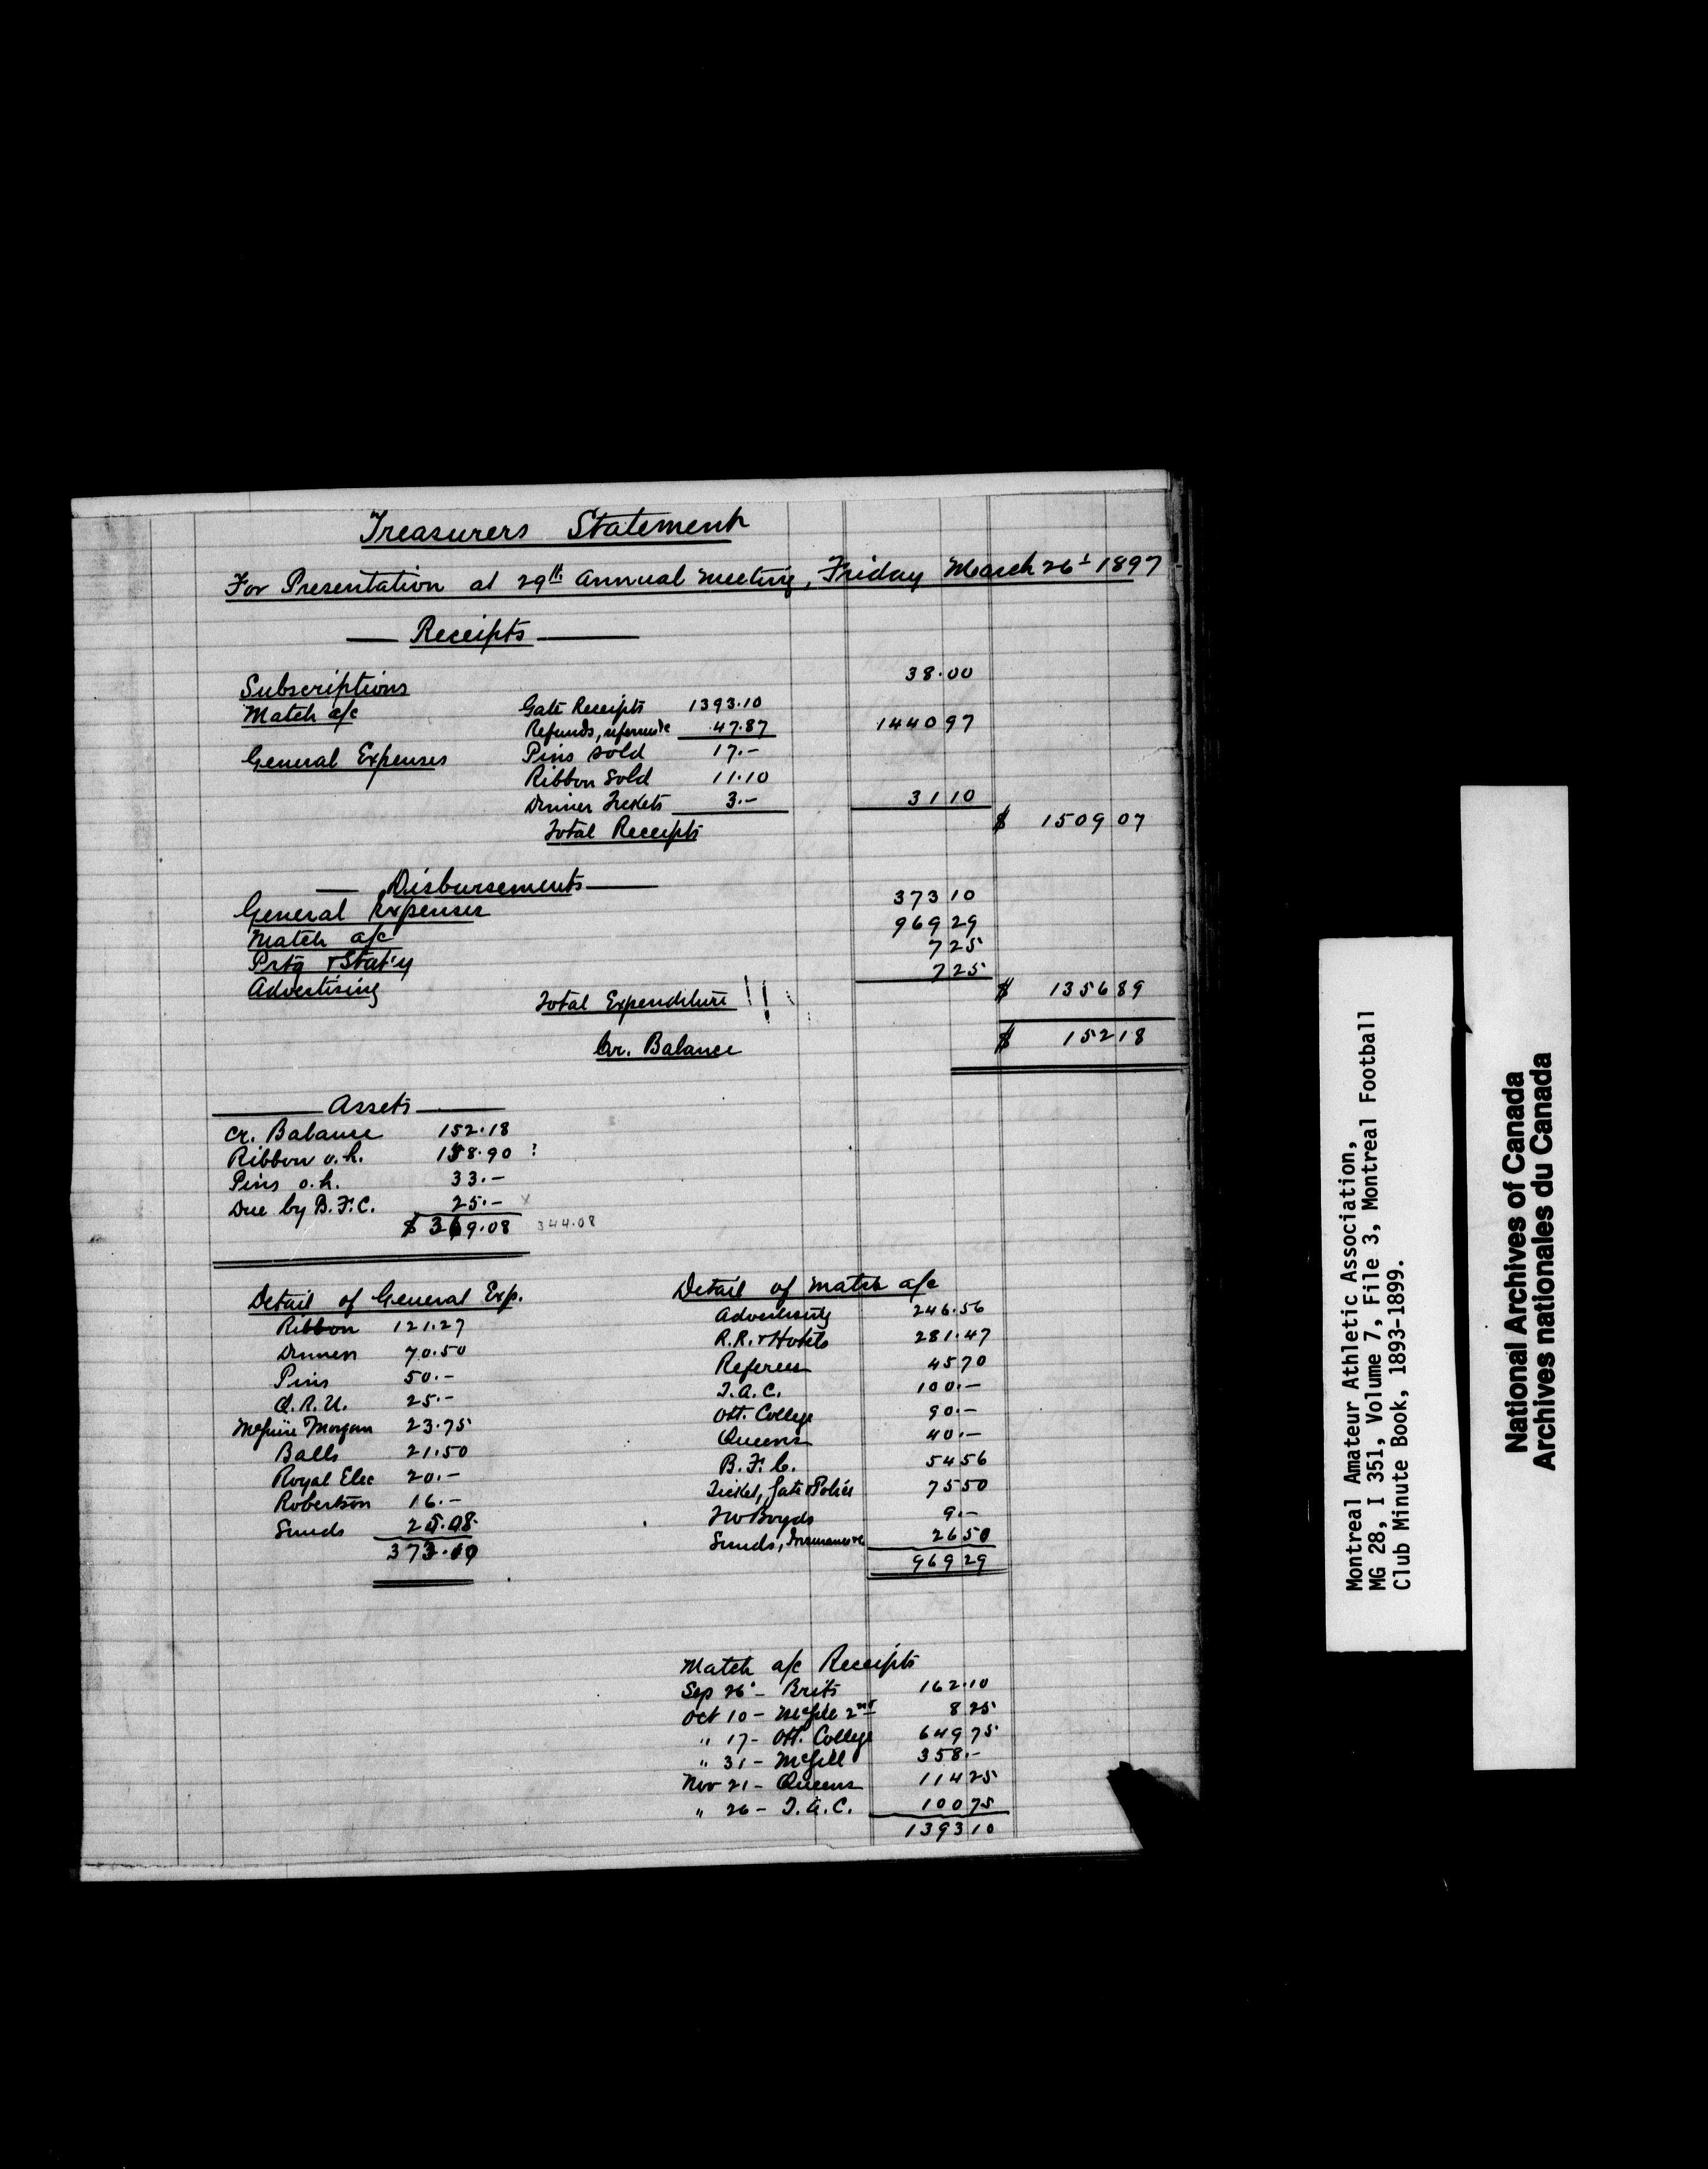 Treasurers Statement
For Presentation at 29th Annual Meeting, Friday March 26t 1897
Receipts
Subscriptions 38.00
Match a/c Gate Receipts 1393.10
Refunds, referees &c 47.87 1440 97
General Expenses Pins sold 17.-
Ribbon Sold 11.10
Dinner Tickets 3.- 31 10
Total Receipts $ 1509 07
Disbursements
General Expenses 373 10
Match a/c 969 29
Prtg & Stat'y 7 25
Advertising 7 25
Total Expenditure !! $ 1356 89
Cr. Balance $ 152 18
Assets
Cr. Balance 152.18
Ribbon o.h. 158.90 ?
Pins o.h. 33.-
Due by B.F.C. 25.- x
$ 369.08 344.08
Detail of General Exp.
Ribbon 121.27
Dinner 70.50
Pins 50.-
Q.R.U. 25.-
McGuire Morgan 23.75
Balls 21.50
Royal Elec 20.-
Robertson 16.-
Sunds 25.08
373.10
Detail of Match a/c
Advertising 246.56
R.R. & Hotels 281.47
Referees 45 70
T.A.C. 100.-
Ott. College 90.-
Queens 40.-
B.F.C. 54 56
Ticket, Gate & Police 75 50
Two Boyds 9.-
Sunds, Insurance &c 26 50
969 29
Match a/c Receipts
Sep 26 - Brits 162.10
Oct 10 - McGill 2nd 8 25
" 17 - Ott. College 649 75
" 31 - McGill 358.-
Nov 21 - Queens 114 25
" 26 - T.A.C. 100 75
1393 10
Montreal Amateur Athletic Association,
MG 28, I 351, Volume 7, File 3, Montreal Football
Club Minute Book, 1893-1899.
National Archives of Canada
Archives nationales du Canada